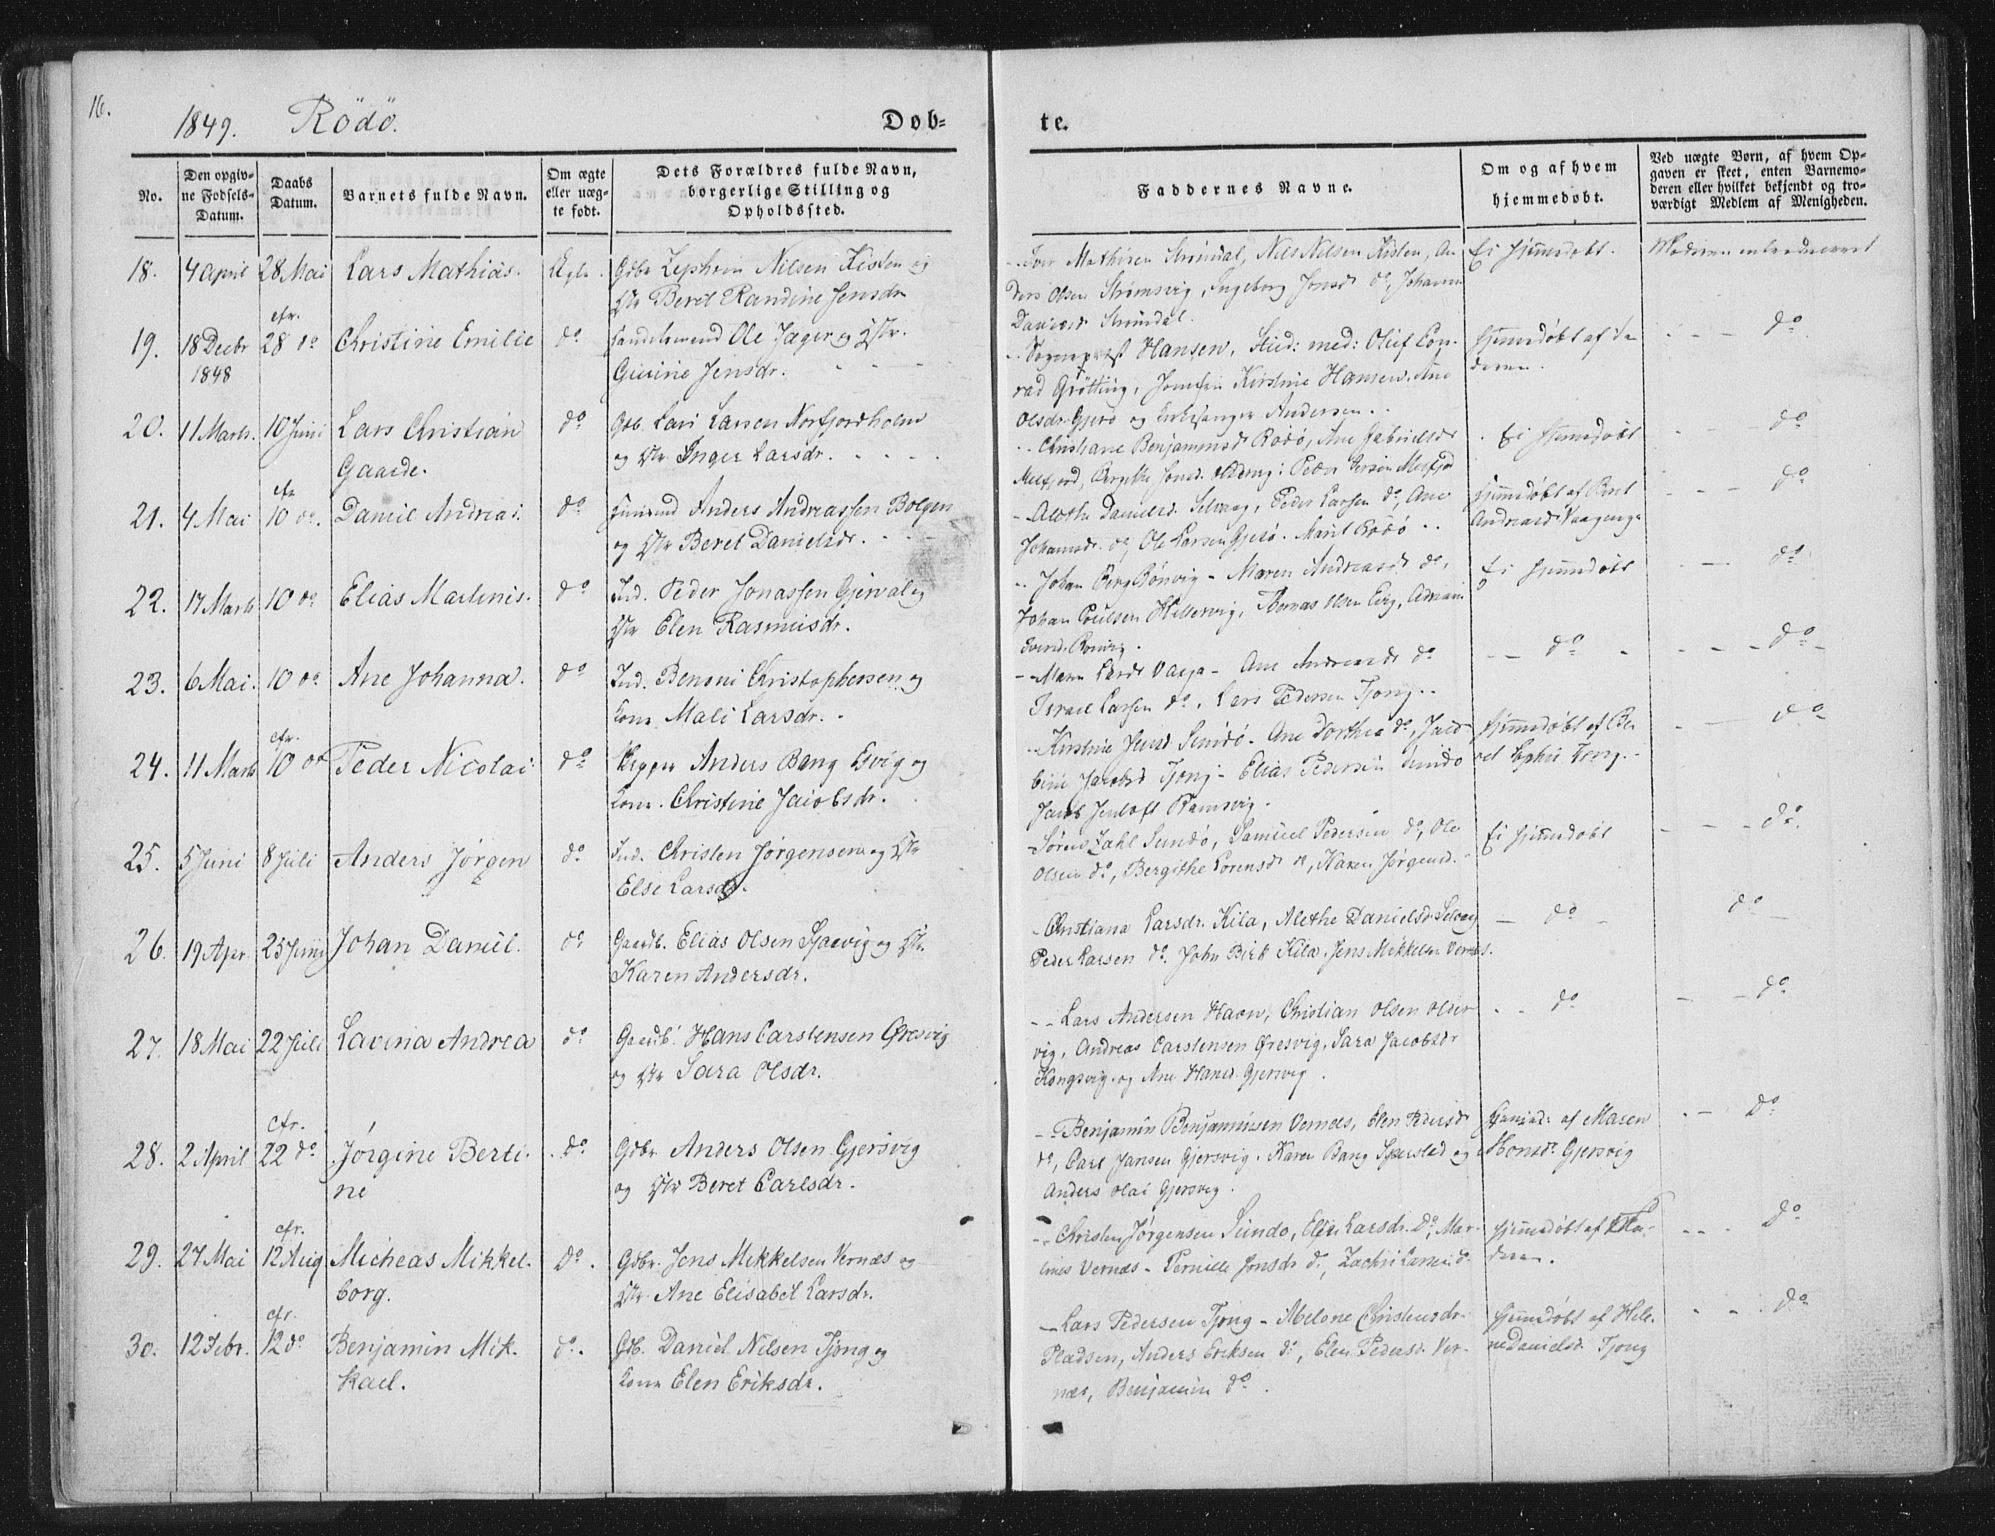 16.
1849. Rödö. Døb-
te.
No.
Den opgiv-
ne Fødsels-
Datum.
Daabs
Datum.
Barnets fulde Navn.
Om ægte
eller uæg-
te født.
Dets Forældres fulde Navn,
borgerlige Stilling og
Opholdssted.
Faddernes Navne.
Om og af hvem
hjemmedøbt.
Ved uægte Børn, af hvem Op-
gaven er skeet, enten Barnemo-
deren eller hvilket bekjendt og tro-
værdigt Medlem af Menigheden.
18. 4 April 28 Mai Lars Mathias. Ægte. Gdbr Zephren Nilsen Kisten og
Beret Randine Jensdr
Iver Mathisen Strømdal, Nils Nilsen Kisten, An
ders Olsen Strømsvig, Ingeborg Jonsd do, Johanna
Strømdal.
Ei hjemmedøbt. Moderen introduceret
cfr.
19. 18 Decbr 28 do Christine Emilie do Handelsmand Ole Jæger og
1848
Jensdr.
Sogneprest Hansen, Stud: med: Oluf Con-
rad Grötting, Jomfru Kirstine Hansen. Ane
Olsdr. Gjerö og Kirkesanger Andersen.
hjemmedøbt af Fa
deren.
do
20. 11 Marts. 10 Juni Lars Christian do Gdb. Lars Larsen Norfjordholm
Gaarde. og Inger Larsdr.
Christiane Benjaminsd Rödö, Ane Gabrielsdr
Melfjord,
Ei hjemmedøbt
do
cfr
21. 4 Mai 10 do. Daniel Andreas. do Huusmd Anders Andreassen Bolgen
og Beret Danielsdr.
Alethe Danielsd. Selvaag, Peder Larsen do, Ane
Johannsdr. do, Ole Larsen Gjerö. Marit Rödö
hjemmedøbt af Beret
Andreasdr
do
22. 17 Marts 10 do Elias Martinis. do Ind. Peder Jonassen Gjerval og
Elen Rasmusdr.
Johan Berg Bönvig - Maren Andreasd do,
Johan Poulsen Hellervig, Thomas Olsen
Ei hjemmedøbt
do
23. 6 Mai. 10 do Ane Johanna. do Ind. Benoni Christophersen og
Kone Mali Larsdr.
Maren Larsd Vaga - Ane Andreasdr do
Israel Larsen do, Lars Pedersen Tjong.
do
do
cfr.
24. 11 Marts 10 do Peder Nicolai do Skipper Anders Bang Esvig og
Kone. Christine Jacobsdr.
Kirstine Jensd Sundö. Ane Dorthea do, Jaco-
bine Jacobsd Tjong - Elias Pedersen Sundö
Jacob Jentoft Ramsvig.
hjemmedøbt af Be-
ret Tjong.
do
25. 5 Juni 8 Juli Anders Jørgen do. Ind. Christen Jørgensen og
Else Larsdr.
Sörens Zahl Sundö, Samuel Pedersen do, Ole
Olsen do, Bergithe Lorensd do, Karen Jørgensd.
Ei hjemmedøbt
do.
26. 19 Apr. 25 Juni Johan Daniel. do Gaardb. Elias Olsen Sjaavig og
Karen Andersdr.
Christiana Larsdr. Kila, Alethe Danielsd. Selvaag
Peder Larsen do. John Birk Kila. Jens Mikkelsen Vernæs.
do
do
27. 18 Mai 22 Juli Lavina Andrea do Gaardb. Hans Carstensen Øresvig
og Sara Olsdr.
Lars Andersen Havn, Christian Olsen Older
vig, Andreas Carstensen Øresvig. Sara Jacobsdr
Kongsvig og Ane Hansd. Gjersvig.
do
do
cfr.
28. 2 April 22 do Jørgine Berti- do Gdbr. Anders Olsen Gjersvig
ne og Beret Carlsdr.
Benjamin Benjaminsen Vernæs, Elen Pedersdr
do, Carl Jansen Gjersvig. Karen Bang Sjærstad og
Anders Olai Gjersvig.
af Maren
Hansdr Gjersvig
do
cfr.
29. 27 Mai 12 Aug Micheas Mikkel- do. Gdbr. Jens Mikkelsen Vernæs og
borg. Ane Elisabet Larsdr.
Christen Jørgensen Sundö, Else Larsdr. do, Mar-
tinus Vernæs - Pernille Jonsdr do, Zachri Larsen do
hjemmedøbt af Fa-
deren.
do
cfr.
30. 12 Febr. 12 do Benjamin Mik- do. Gdb. Daniel Nilsen Tjong og
kael. Kone Elen Eriksdr.
Lars Pedersen Tjong - Melone Christensdr.
Pladsen, Anders Eriksen do, Elen Pedersd. Ver-
næs, Benjamin do.
hjemmedøbt af Hele-
ne Danielsd. Tjong
do